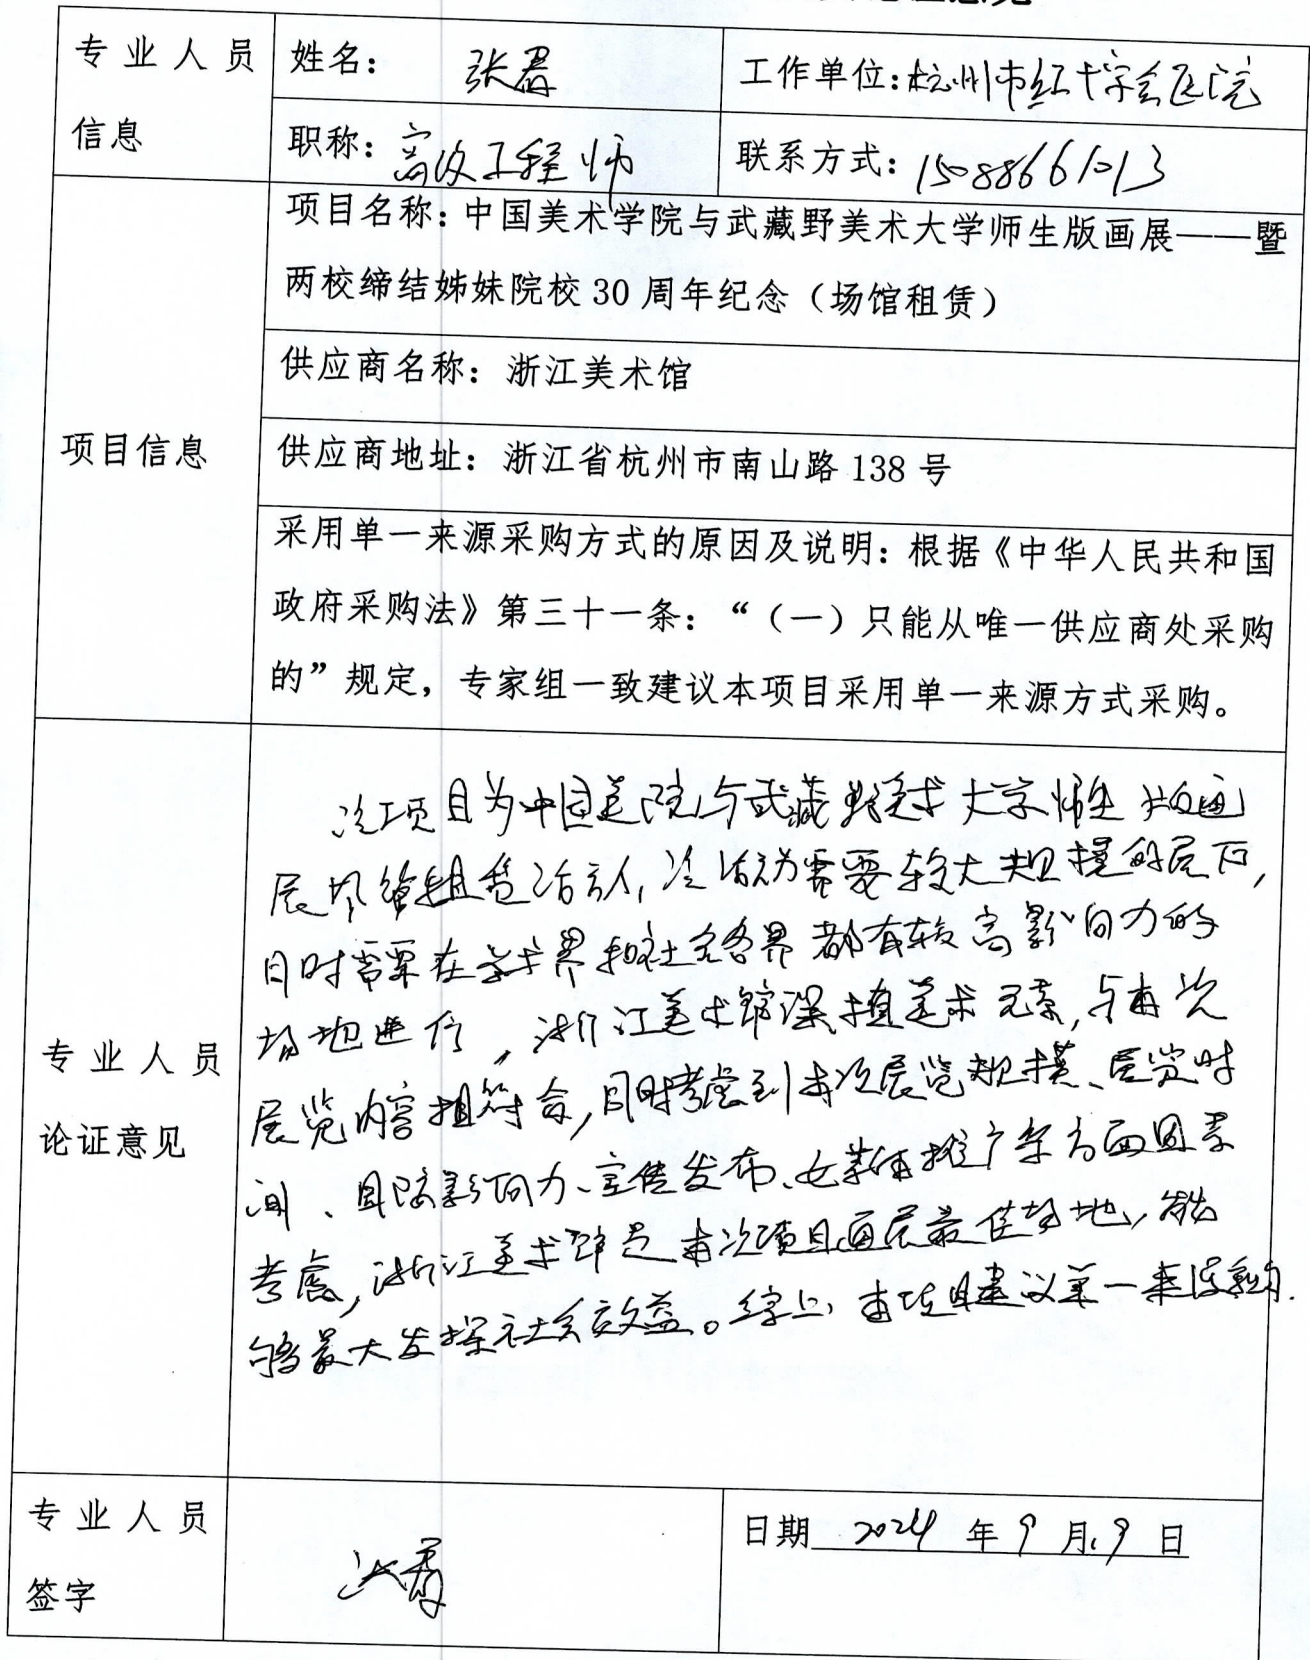 专业人员
信息
姓名：张君
工作单位：杭州市红十字会医院
职称：高级工程师
联系方式：15088661013
项目信息
项目名称：中国美术学院与武藏野美术大学师生版画展——暨
两校缔结姊妹院校 30 周年纪念（场馆租赁）
供应商名称：浙江美术馆
供应商地址：浙江省杭州市南山路 138 号
采用单一来源采购方式的原因及说明：根据《中华人民共和国
政府采购法》第三十一条：“（一）只能从唯一供应商处采购
的”规定，专家组一致建议本项目采用单一来源方式采购。
专业人员
论证意见
该项目为中国美院与武藏野美术大学师生
展 租赁活动，该活动需要较大规模的展厅，
同时需要在学术界和社会各界都有较高影响力的
场地进行，浙江美术馆深植美术元素，与本次
展览内容相符合，同时考虑到本次展览规模、展览时
间、国际影响力、宣传发布、媒体推广等方面因素
考虑，浙江美术馆是本次项目画展最佳场地，能
够最大发挥社会效益。综上，本项目建议单一来源采购.
专业人员
签字
张君
日期 2024 年 9 月 9 日